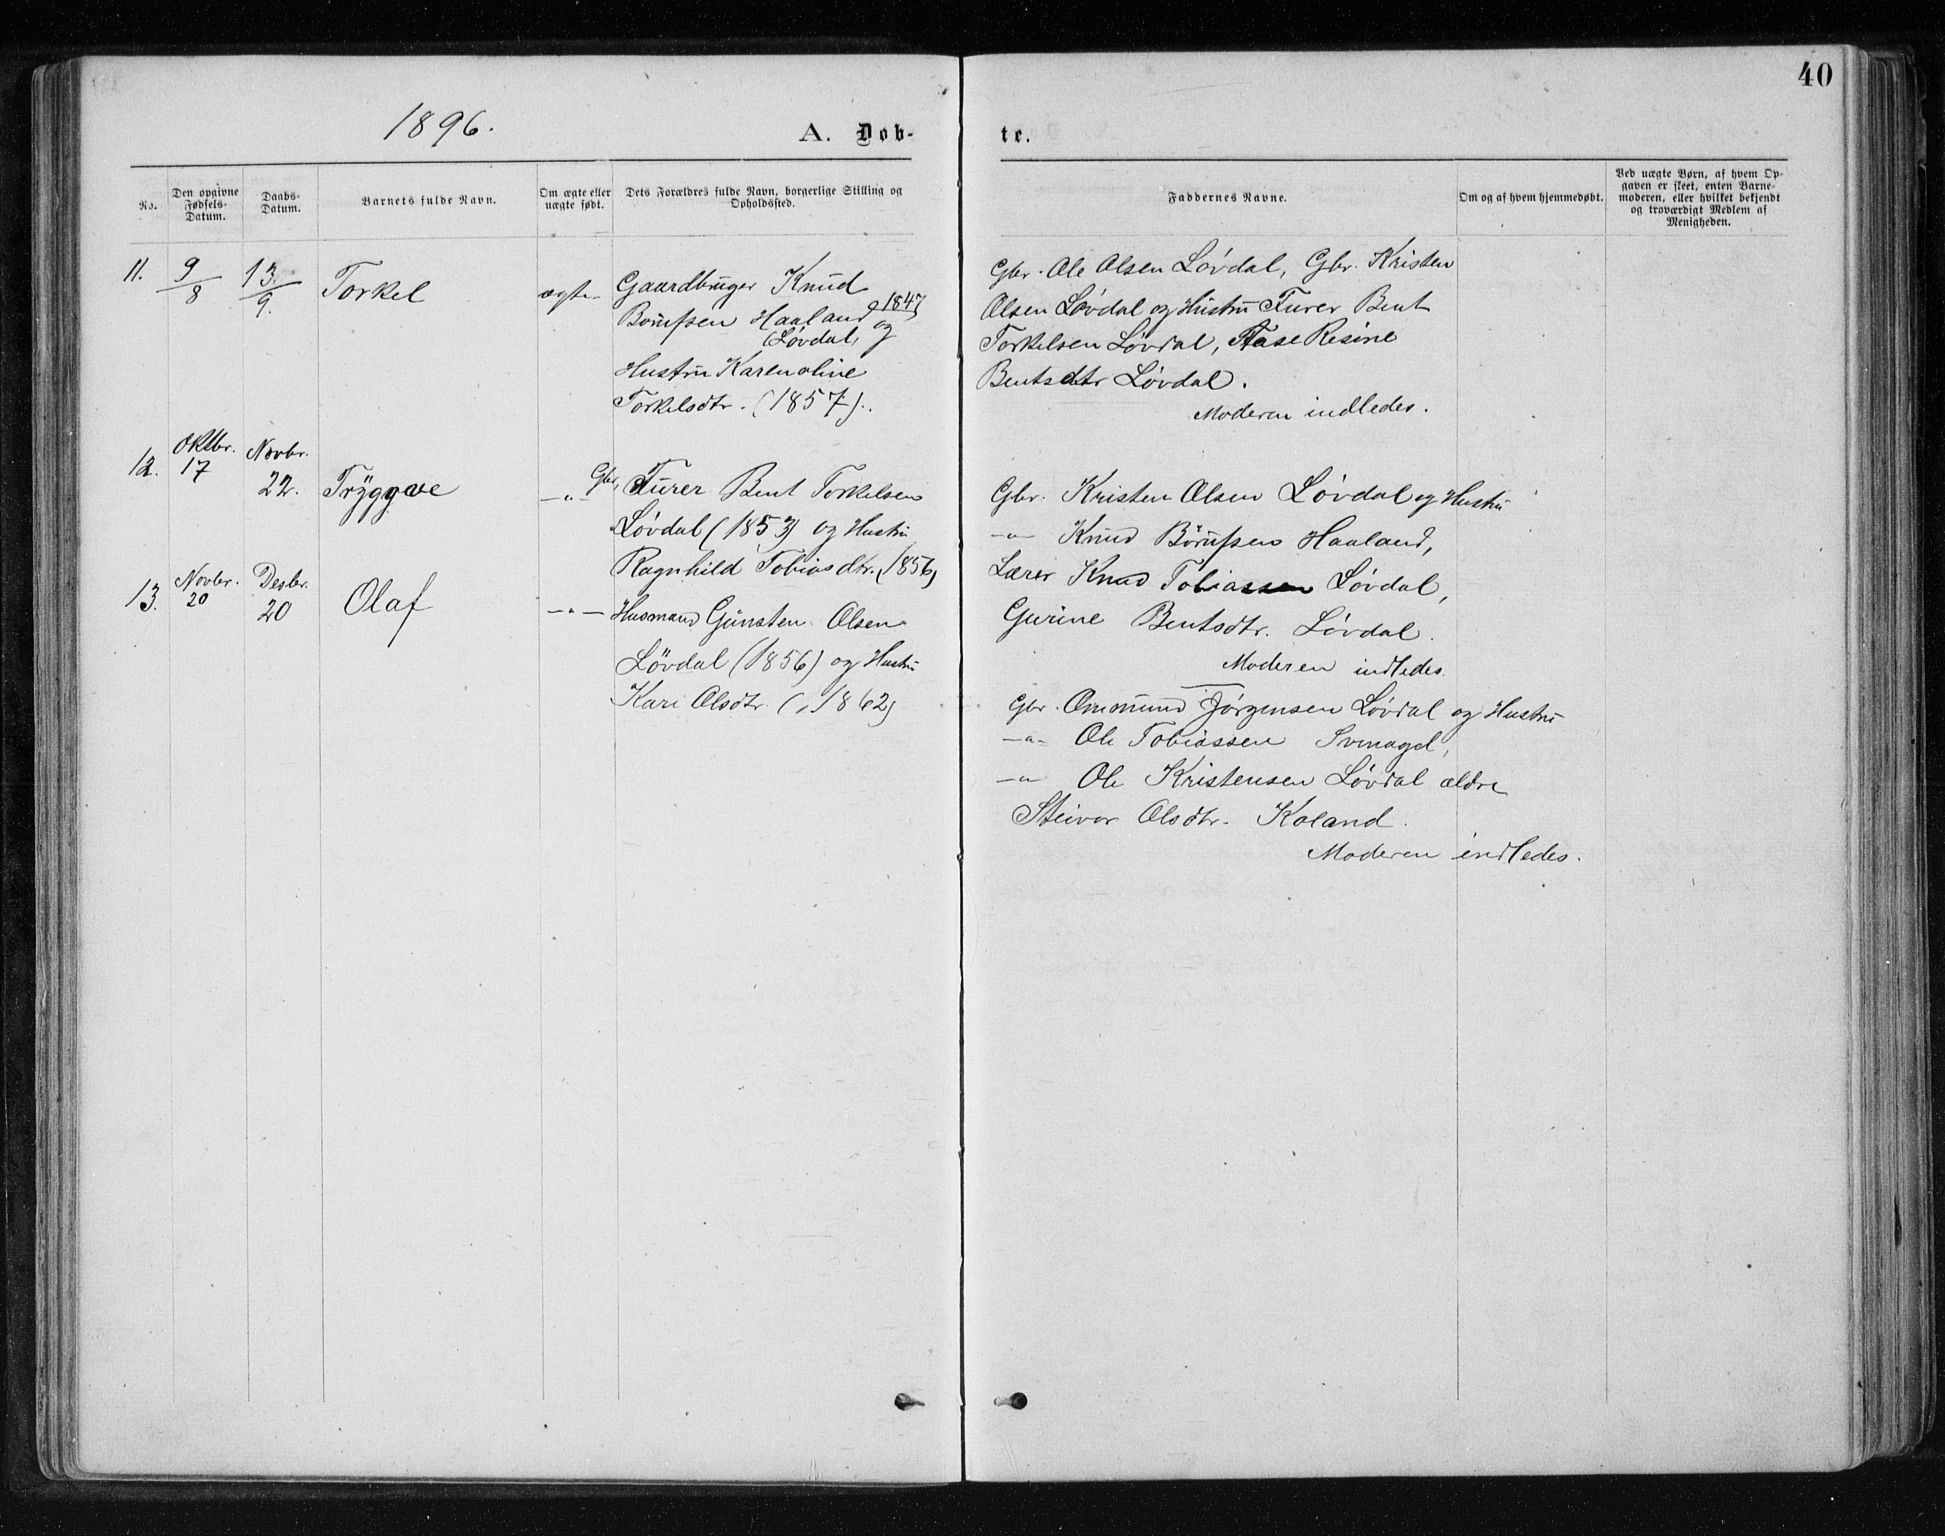 40
1896.
A. Døb-
te.
No.
Den opgivne Fødsels-Datum.
Daabs-Datum.
Barnets fulde Navn.
Om ægte eller uægte født.
Dets Forældres fulde Navn, borgerlige Stilling og Opholdssted.
Faddernes Navne.
Om og af hvem hjemmedøbt.
Ved uægte Børn, af hvem Op-
gaven er skeet, enten Barne-
moderen, eller hvilket bekjendt
og troværdigt Medlem af
Menigheden.
11. 9/8 13/9. Torkel ægte
Gaardbruger Knud
Børufsen Haaland 1847
(Løvdal, og
Hustru Karenoline
Torkelsdtr. (1857).
Gbr. Ole Olsen Løvdal, Gbr. Kristen
Olsen Løvdal og Hustru Furer Bent
Torkelsen Løvdal, Resine
Bentsdtr Løvdal.
Moderen indledes.
12. Oktbr. 17 Novbr. 22. Tryggve —"—
Gbr, Furer Bent Torkelsen
Løvdal (1853) og Hustru
Ragnhild Tobiasdtr. (1856)
Gbr. Kristen Olsen Løvdal og Hustru
—"— Knud Børufsen Haaland,
Lærer Knud Tobiassen Løvdal,
Gurine Bentsdtr. Løvdal.
Moderen indledes.
13. Novbr. 20 Desbr. 20 Olaf —"—
Husmand Gunsten Olsen
Løvdal (1856) og Hustru
Kari Olsdtr. (1862)
Gbr. Ommund Jørgensen Løvdal og Hustru
—"— Ole Tobiassen
—"— Ole Kristensen Løvdal ældre
Steivor Olsdtr. Koland.
Moderen indledes.